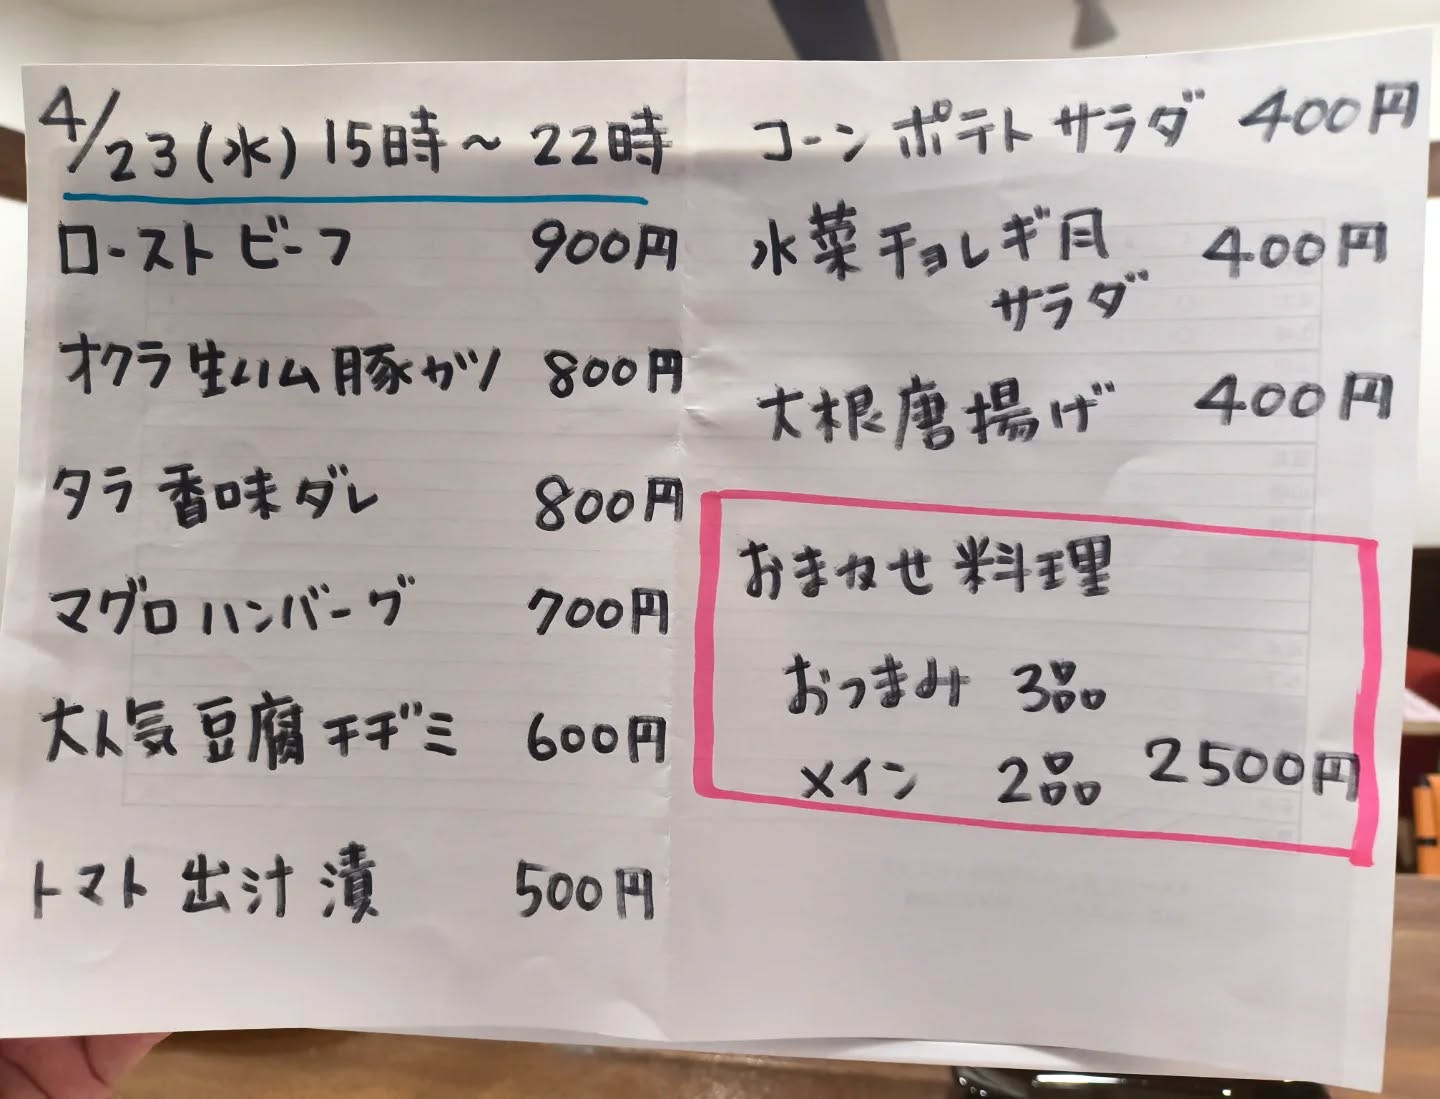 4/23(水) 15時~22時
ローストビーフ 900円
オクラ生ハム豚ガツ 800円
タラ香味ダレ 800円
マグロハンバーグ 700円
大人気豆腐チヂミ 600円
トマト出汁漬 500円
コーンポテトサラダ 400円
水菜チョレギ風 400円
サラダ
大根唐揚げ 400円
おまかせ料理
おつまみ 3品
メイン 2品 2500円